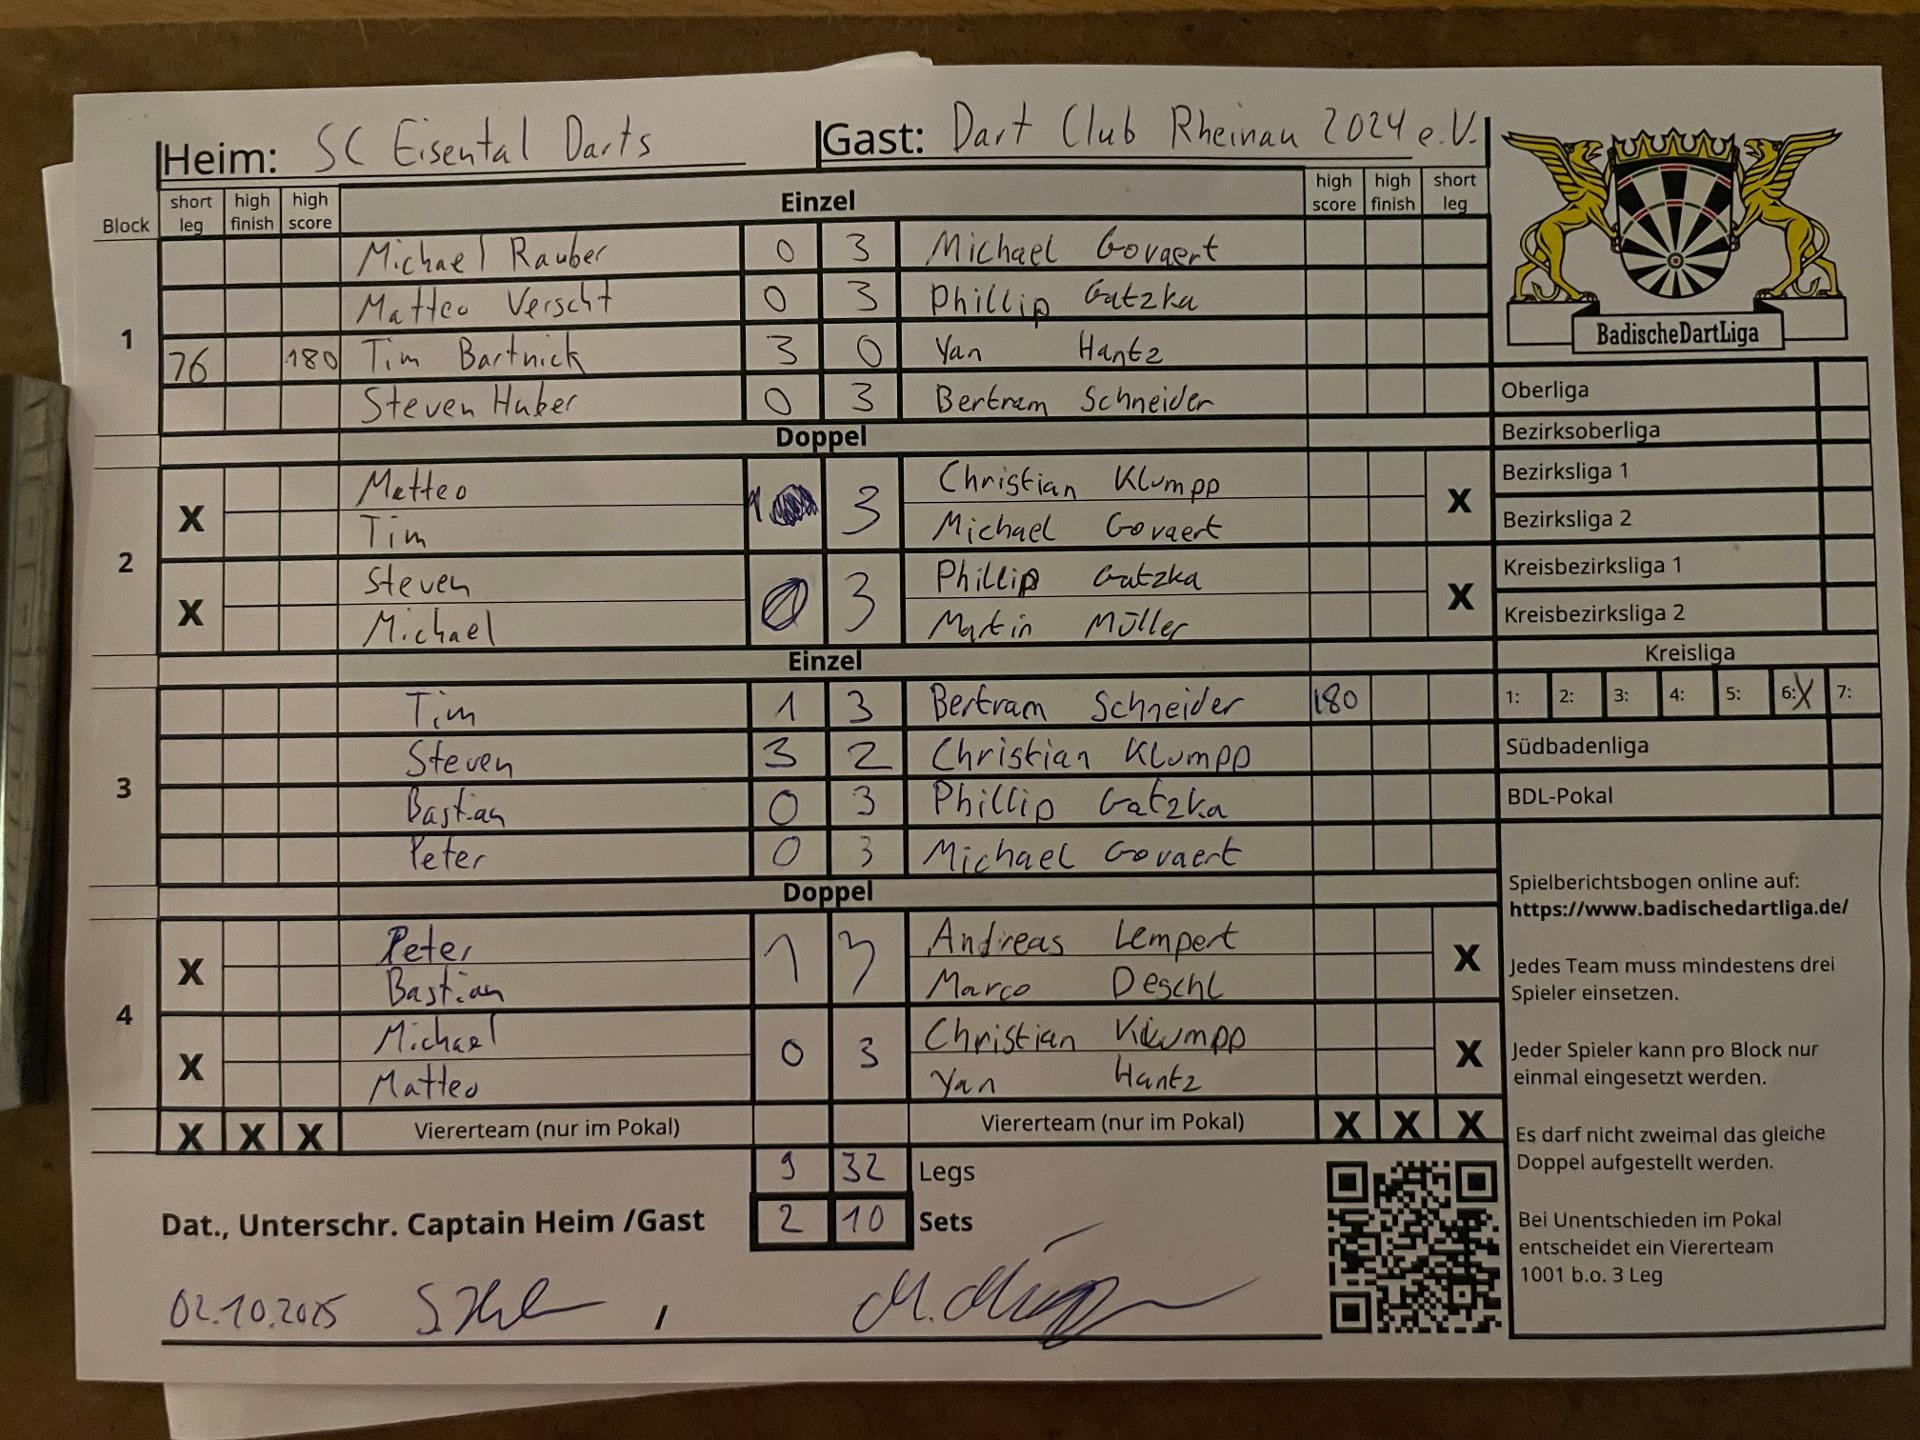 Heim: SC Eisental Darts Gast: Dart Club Rheinau 2024 e.V.
Block short leg high finish high score Einzel high score high finish short leg
1
Michael Rauber 0 3 Michael Govaert
Matteo Verscht 0 3 Phillip Gatzka
76 180 Tim Bartnick 3 0 Yan Hantz
Steven Huber 0 3 Bertram Schneider
Doppel
2
X Matteo 1 3 Christian Klumpp X
Tim Michael Govaert
X Steven 0 3 Phillip Gatzka X
Michael Martin Müller
Einzel
3
Tim 1 3 Bertram Schneider 180
Steven 3 2 Christian Klumpp
Bastian 0 3 Phillip Gatzka
Peter 0 3 Michael Govaert
Doppel
4
X Peter 1 3 Andreas Lempert X
Bastian Marco Deschl
X Michael 0 3 Christian Klumpp X
Matteo Yan Hantz
X X X Viererteam (nur im Pokal) Viererteam (nur im Pokal) X X X
9 32 Legs
Dat., Unterschr. Captain Heim /Gast 2 10 Sets
02.10.2025 /
BadischeDartLiga
Oberliga
Bezirksoberliga
Bezirksliga 1
Bezirksliga 2
Kreisbezirksliga 1
Kreisbezirksliga 2
Kreisliga
1: 2: 3: 4: 5: 6: X 7:
Südbadenliga
BDL-Pokal
Spielberichtsbogen online auf:
https://www.badischedartliga.de/
Jedes Team muss mindestens drei
Spieler einsetzen.
Jeder Spieler kann pro Block nur
einmal eingesetzt werden.
Es darf nicht zweimal das gleiche
Doppel aufgestellt werden.
Bei Unentschieden im Pokal
entscheidet ein Viererteam
1001 b.o. 3 Leg